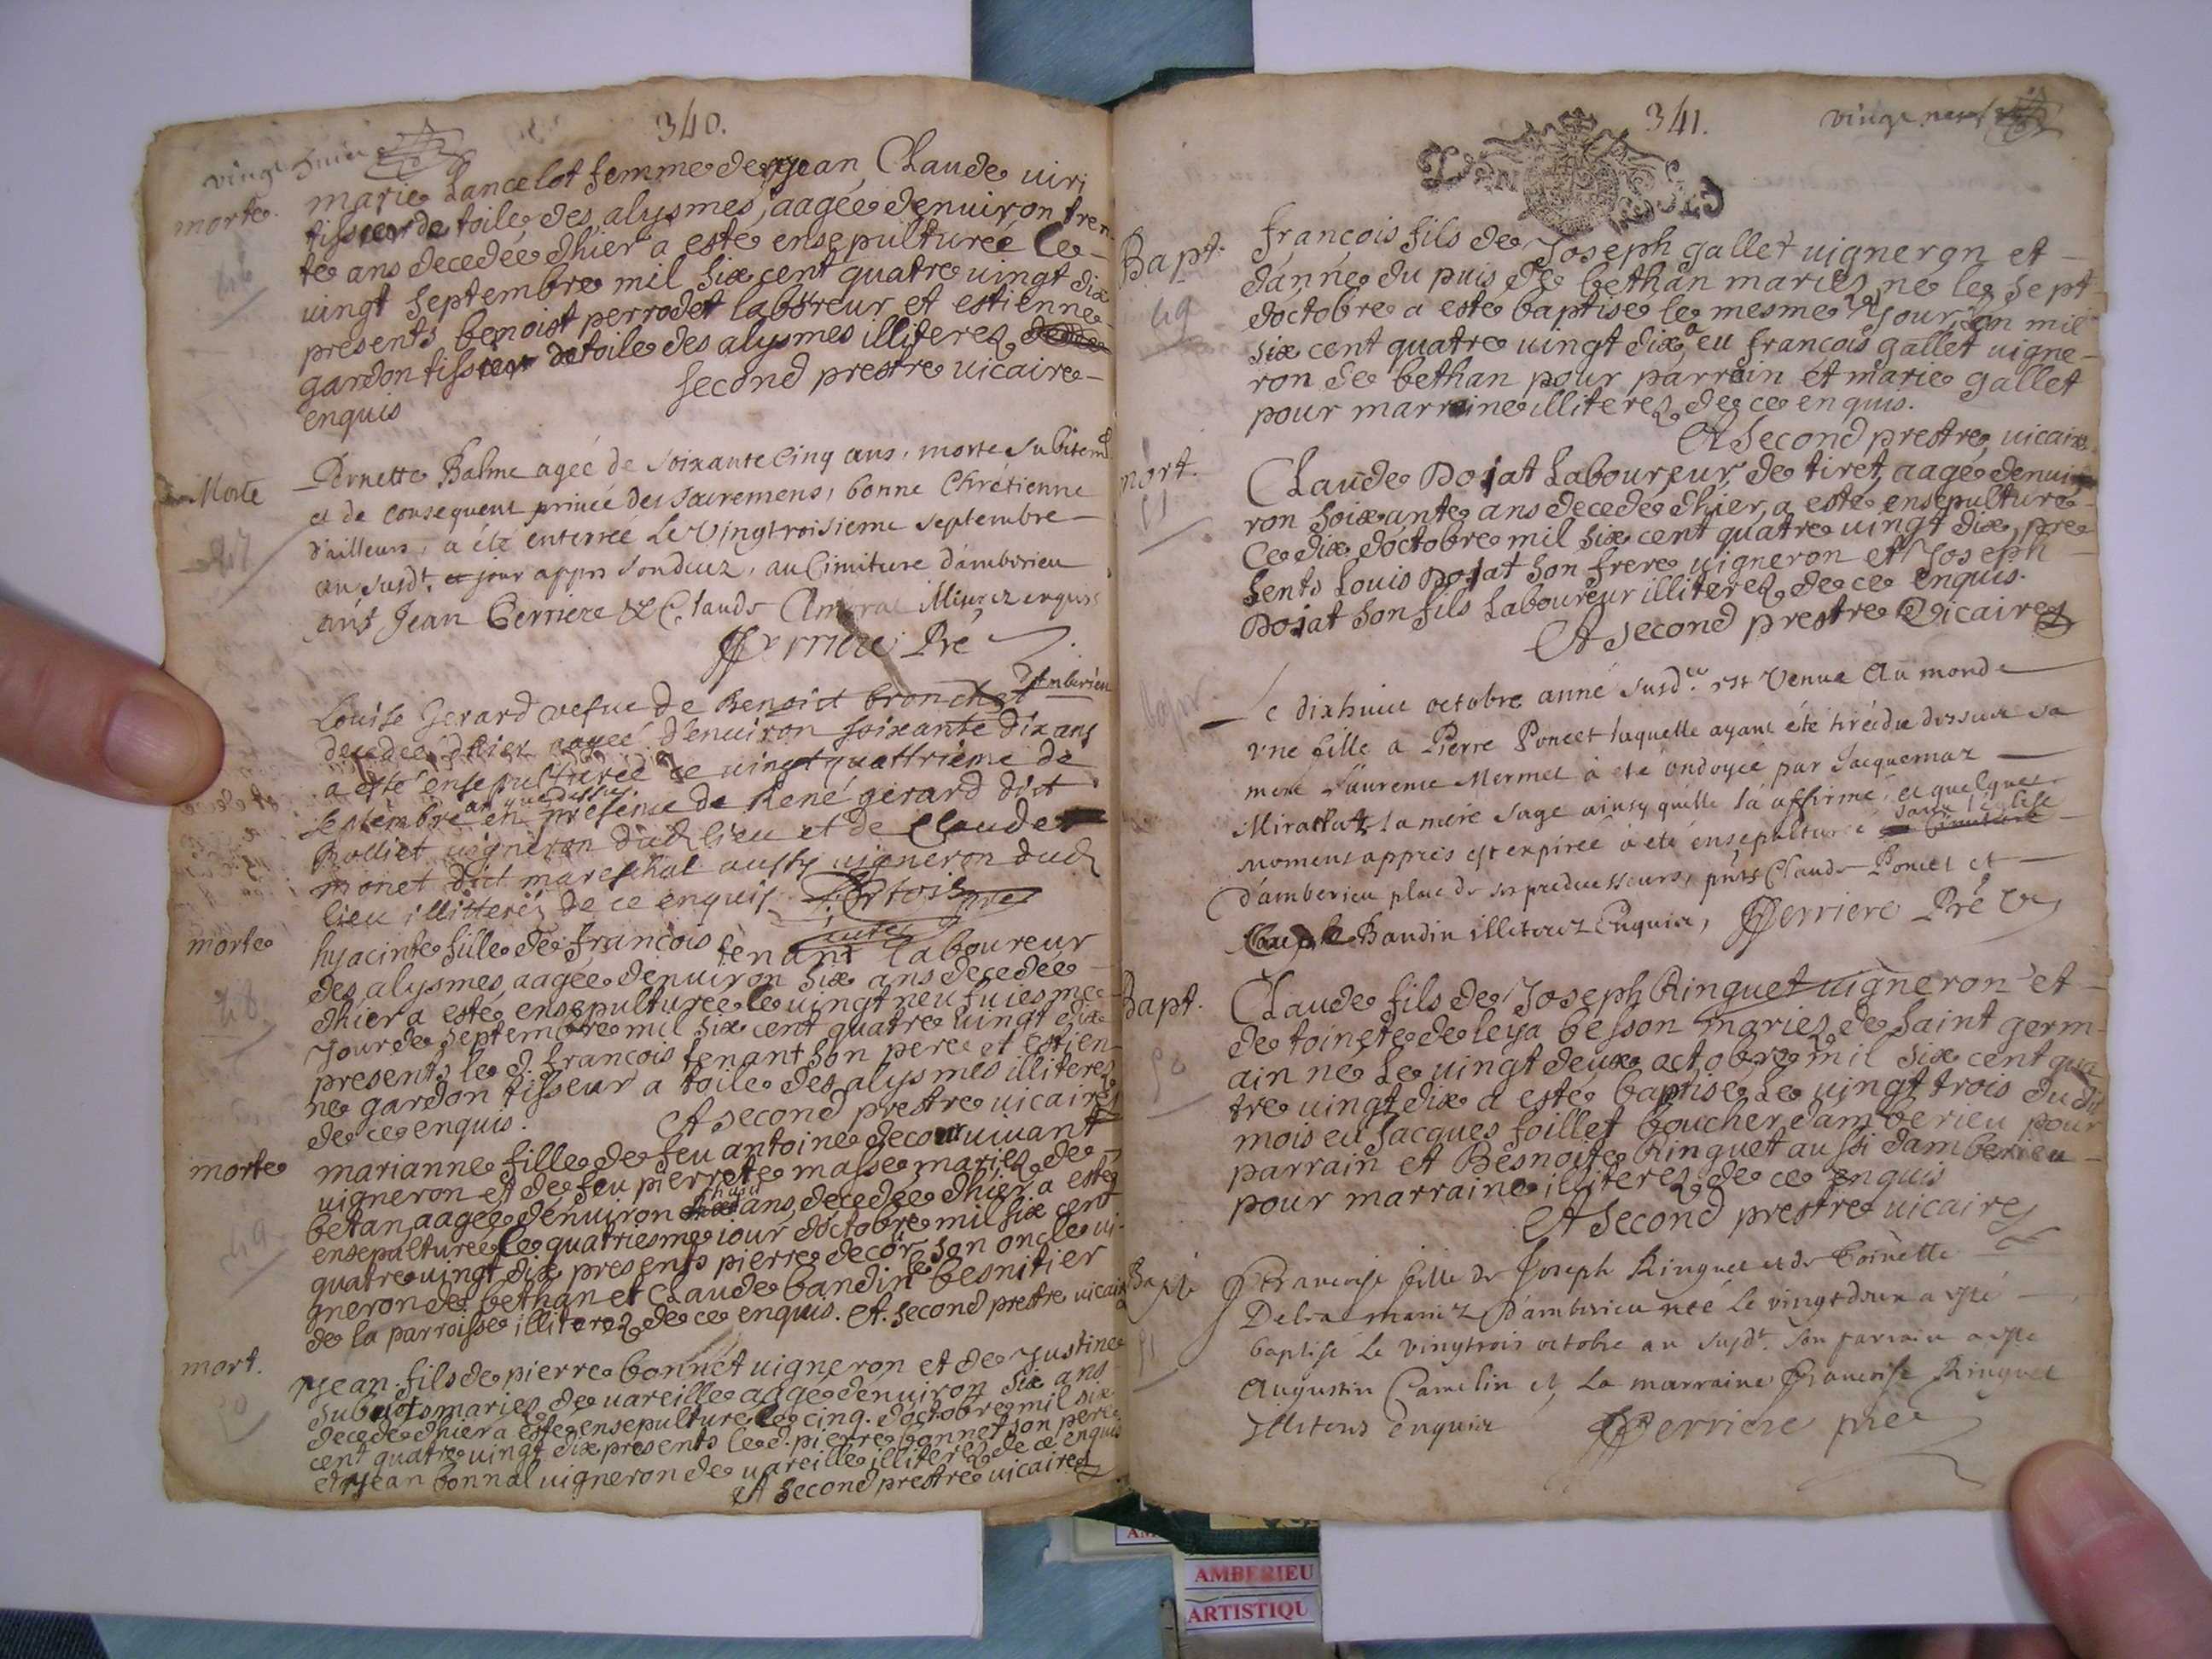 340.
vingt huit
morte.
marie Lancelot femme de Jean Claude uiri
tisseur de toile des alysmes, aagée denuiron tren-
te ans decedée dhier a esté ensepulturée le
uingt septembre mil six cent quatre uingt dix
presents benoist perrodet laboureur et estienne
gardon tisseur de toile des alysmes illiterez de ce
enquis
second prestre uicaire
Morte
Pernette Balme agée de soixante cinq ans, morte subitemt
et de consequent privée des sacremens, bonne Chrétienne
d'ailleurs, a été enterrée Le Vingtroisieme septembre
an susdt. et jour appres son deuz, au Cimitiere damberieu
Jean Perriere & Claude illiterez enquis
Perriere Pré
Louise Gerard vefue de Benoist bronchet d'Amberieu
decedée d'hier agée d'enuiron soixante dix ans
a esté ensepulturée le uingt quattrième de
septembre an que dessus en presence de René gerard dict
Rolliet uigneron dud lieu et de Claude
monet dict mareschal aussy uigneron dud
lieu illitterés de ce enquis
morte
hyacinte fille de françois tenant laboureur
des alysmes aagée denuiron six ans decedée
dhier a esté ensepulturée le uingt neufuiesme
Jour de septembre mil six cent quatre uingt dix
presents le d. francois tenant son pere et estien-
ne gardon tisseur a toile des alysmes illiterez
de ce enquis.
A second prestre uicaire
morte
marianne fille de feu antoine decour uiuant
uigneron et de feu pierrete masse mariez de
betan aagée denuiron huit ans, decedée dhier a esté
ensepulturée le quatriesme iour doctobre mil six cent
quatre uingt dix presents pierre decour son oncle ui-
gneron de bethan et Claude bandin besnitier
de la parroisse illiterez de ce enquis. A second prestre uicaire
mort.
Jean fils de pierre bonnet uigneron et de Justine
mariez de uareille aagé denuiron six ans
decedé dhier a esté ensepulturé le cinq doctobre mil six
cent quatre uingt dix presents le d. pierre bonnet son pere
et Jean bonnal uigneron de uareille illiterez de ce enquis
A second prestre uicaire
341.
vingt neuf
Bapt.
françois fils de Joseph gallet uigneron et
danne du puis de bethan mariez, né le sept
doctobre a esté baptisé le mesme Jour, lan mil
six cent quatre uingt dix, eu francois gallet uigne-
ron de bethan pour parrain et marie gallet
pour marraine illiterez de ce enquis.
A second prestre uicaire
mort.
Claude Dojat Laboureur de tiret, aagé denui-
ron soixante ans decedé dhier, a esté ensepulturé
Ce dix doctobre mil six cent quatre uingt dix, pre-
sents Louis Dojat son frere uigneron et Joseph
Dojat son fils Laboureur illiterez de ce enquis.
A second prestre Vicaire
Le dixhuict octobre anné susd. est Venue Au monde
vne fille a Pierre Poncet laquelle ayant été tirée du dessus sa
mere Laurence Mermet à été ondoyée par Jacquemaz
la mere sage ainsy quelle la affirmé, et quelques
momens appres est expirée à eté ensepulturée dans l'église
d'amberieu place de ses predecesseurs, pnts Claude Poncet et
Baudin illiterez Enquis, Perriere Pré
Bapt.
Claude fils de Joseph Ringuet uigneron et
de toinete de leya besson mariez de saint germ-
ain né le uingt deux octobre mil six cent qua-
tre uingt dix a esté baptisé Le uingt trois du dit
mois eu Jacques foillet boucher damberieu pour
parrain et Besnoite Ringuet aussi damberieu
pour marraine illiterez de ce enquis
A second prestre uicaire
Bapt.
Francoise fille de Joseph Ringuet et de Toinette
mariez d'amberieu née le vingtdeux a esté
baptisé le vingtrois octobre an susdt. son parrain a esté
Augustin Camelin et La marraine Francoise Ringuet
Illiterez enquis
Perriere pré
AMBERIEU
ARTISTIQU